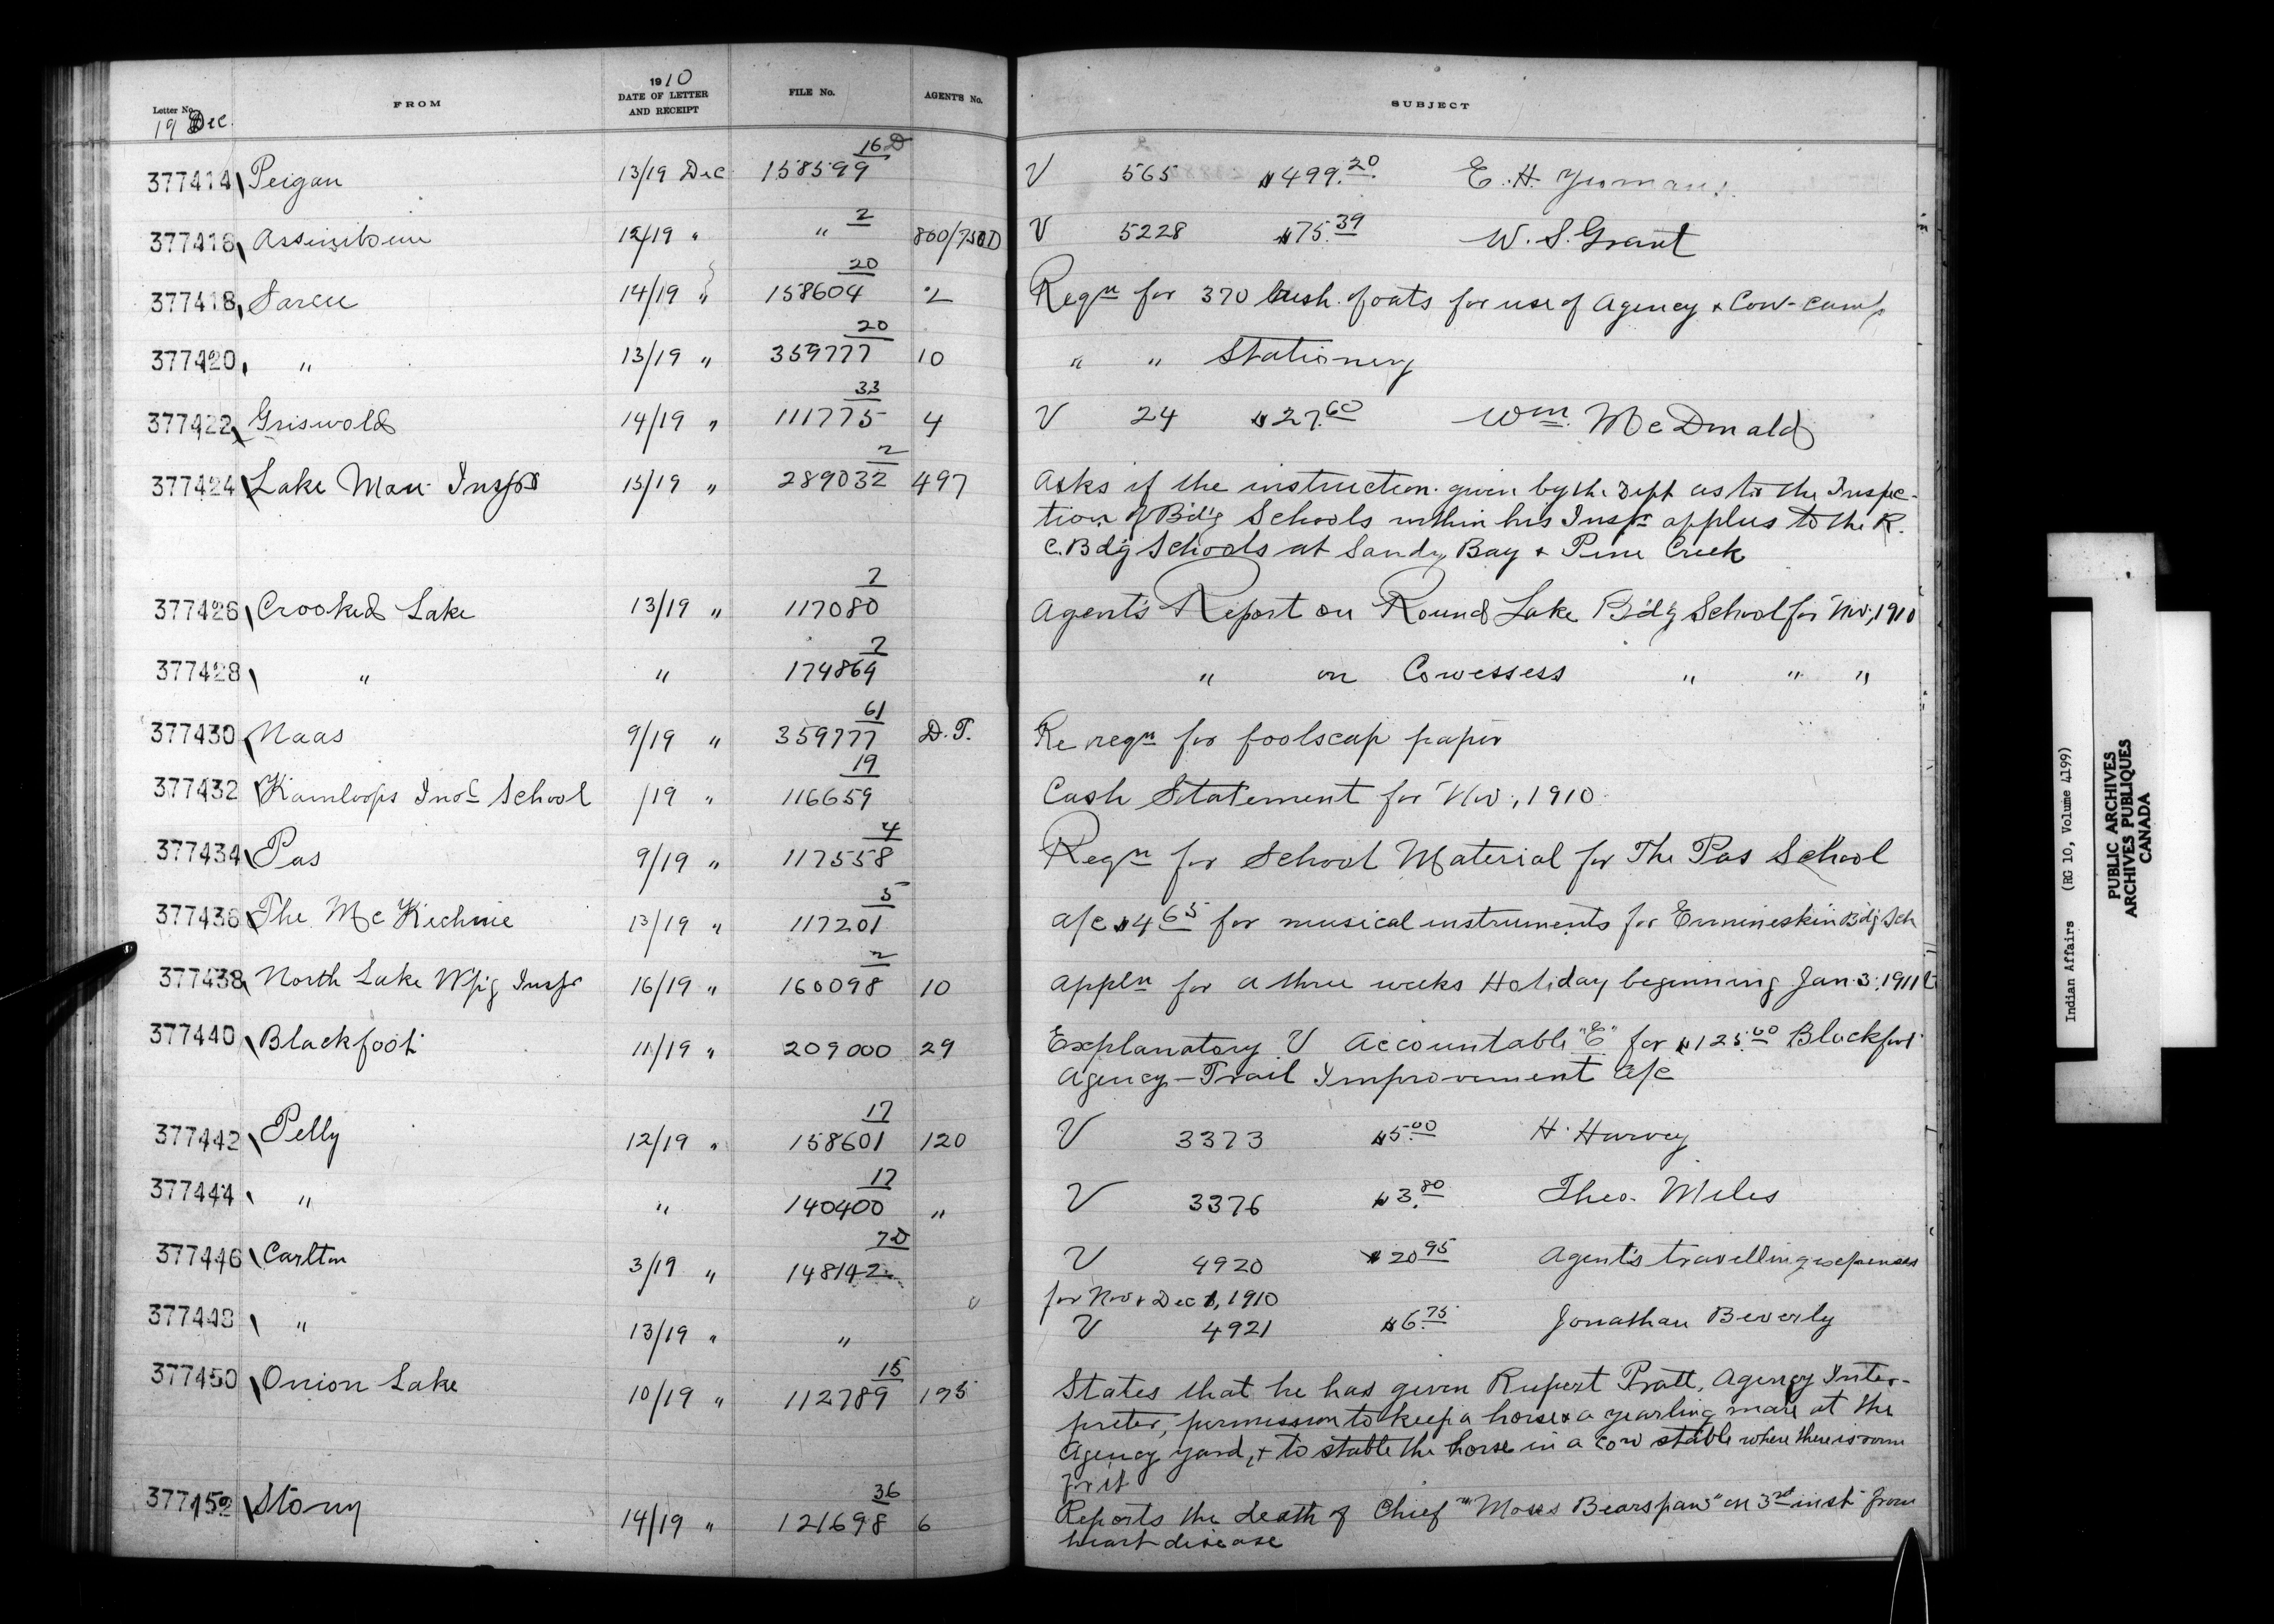 Letter No. FROM 1910 DATE OF LETTER AND RECEIPT FILE No. AGENT'S No. SUBJECT
19 Dec.
377414 Peigan 13/19 Dec 158599 16D V 565 $499.20 E. H. Yeomans
377416 Assiniboine 12/19 " " 2 V 5228 $75.39 W. S. Grant
377418 Sarcee 14/19 " 158604 20 2 Reqn for 370 bush. of oats for use of Agency & Cow-camp
377420 " 13/19 " 359777 20 10 " " Stationery
377422 Griswold 14/19 " 111775 33 4 V 24 $27.60 Wm. McDonald
377424 Lake Man Inspr 15/19 " 289032 2 497 Asks if the instruction given by the Dept as to the Inspec-
tion of Bd'g Schools within his Inspr applies to the R.
C. Bd'g Schools at Sandy Bay & Pine Creek
377426 Crooked Lake 13/19 " 117080 7 Agent's Report on Round Lake Bd'g School for Nov, 1910
377428 " " 174864 7 " on Cowessess " " "
377430 Naas 9/19 " 359777 61 D.T. Re reqn for foolscap paper
377432 Kamloops Indl School /19 " 116659 19 Cash Statement for Nov, 1910
377434 Pas 9/19 " 117558 4 Reqn for School Material for The Pas School
377436 The McKechnie 13/19 " 117201 5 a/c $4.65 for musical instruments for Ermineskin Bdg Sch
377438 North Lake W'pg Inspr 16/19 " 160098 2 10 appln for a three weeks Holiday beginning Jan 3, 1911
377440 Blackfoot 11/19 " 209000 29 Explanatory V Accountable "E" for $125.00 Blackfoot
Agency - Trail Improvement a/c
377442 Pelly 12/19 " 158601 17 120 V 3373 $5.00 H. Harvey
377444 " " 140400 17 " V 3376 $3.80 Theo. Miles
377446 Carlton 3/19 " 148142 7D V 4920 $20.95 Agent's travelling expenses
for Nov & Dec 1, 1910
377448 " 13/19 " " V 4921 $6.75 Jonathan Beverly
377450 Onion Lake 10/19 " 112789 15 175 States that he has given Rupert Pratt, Agency Inter-
preter, permission to keep a horse & a yearling mare at the
Agency yard, & to stable the horse in a cow stable where there is room
for it
377452 Stony 14/19 " 121698 36 6 Reports the death of Chief "Moses Bearspaw" on 3rd inst from
heart disease
Indian Affairs (RG 10, Volume 4199)
PUBLIC ARCHIVES
ARCHIVES PUBLIQUES
CANADA